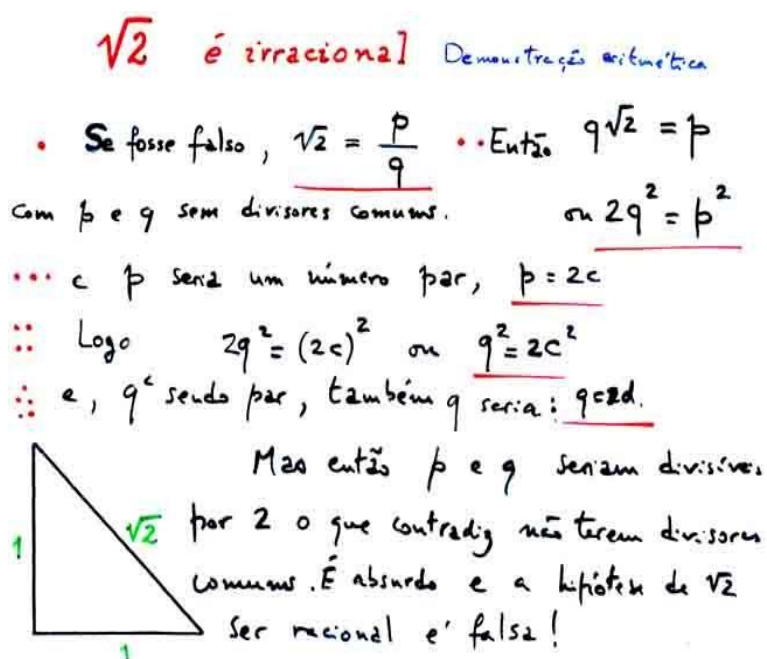 √2 é irracional Demonstração aritmética
• Se fosse falso, √2 = p/q •• Então q√2 = p
com p e q sem divisores comuns. ou 2q² = p²
••• e p seria um número par, p = 2c
:: Logo 2q² = (2c)² ou q² = 2c²
e, q² sendo par, também q seria: q=2d.
Mas então p e q seriam divisíveis
√2 por 2 o que contradiz não terem divisores
1
comuns. É absurdo e a hipótese de √2
ser racional é falsa!
1